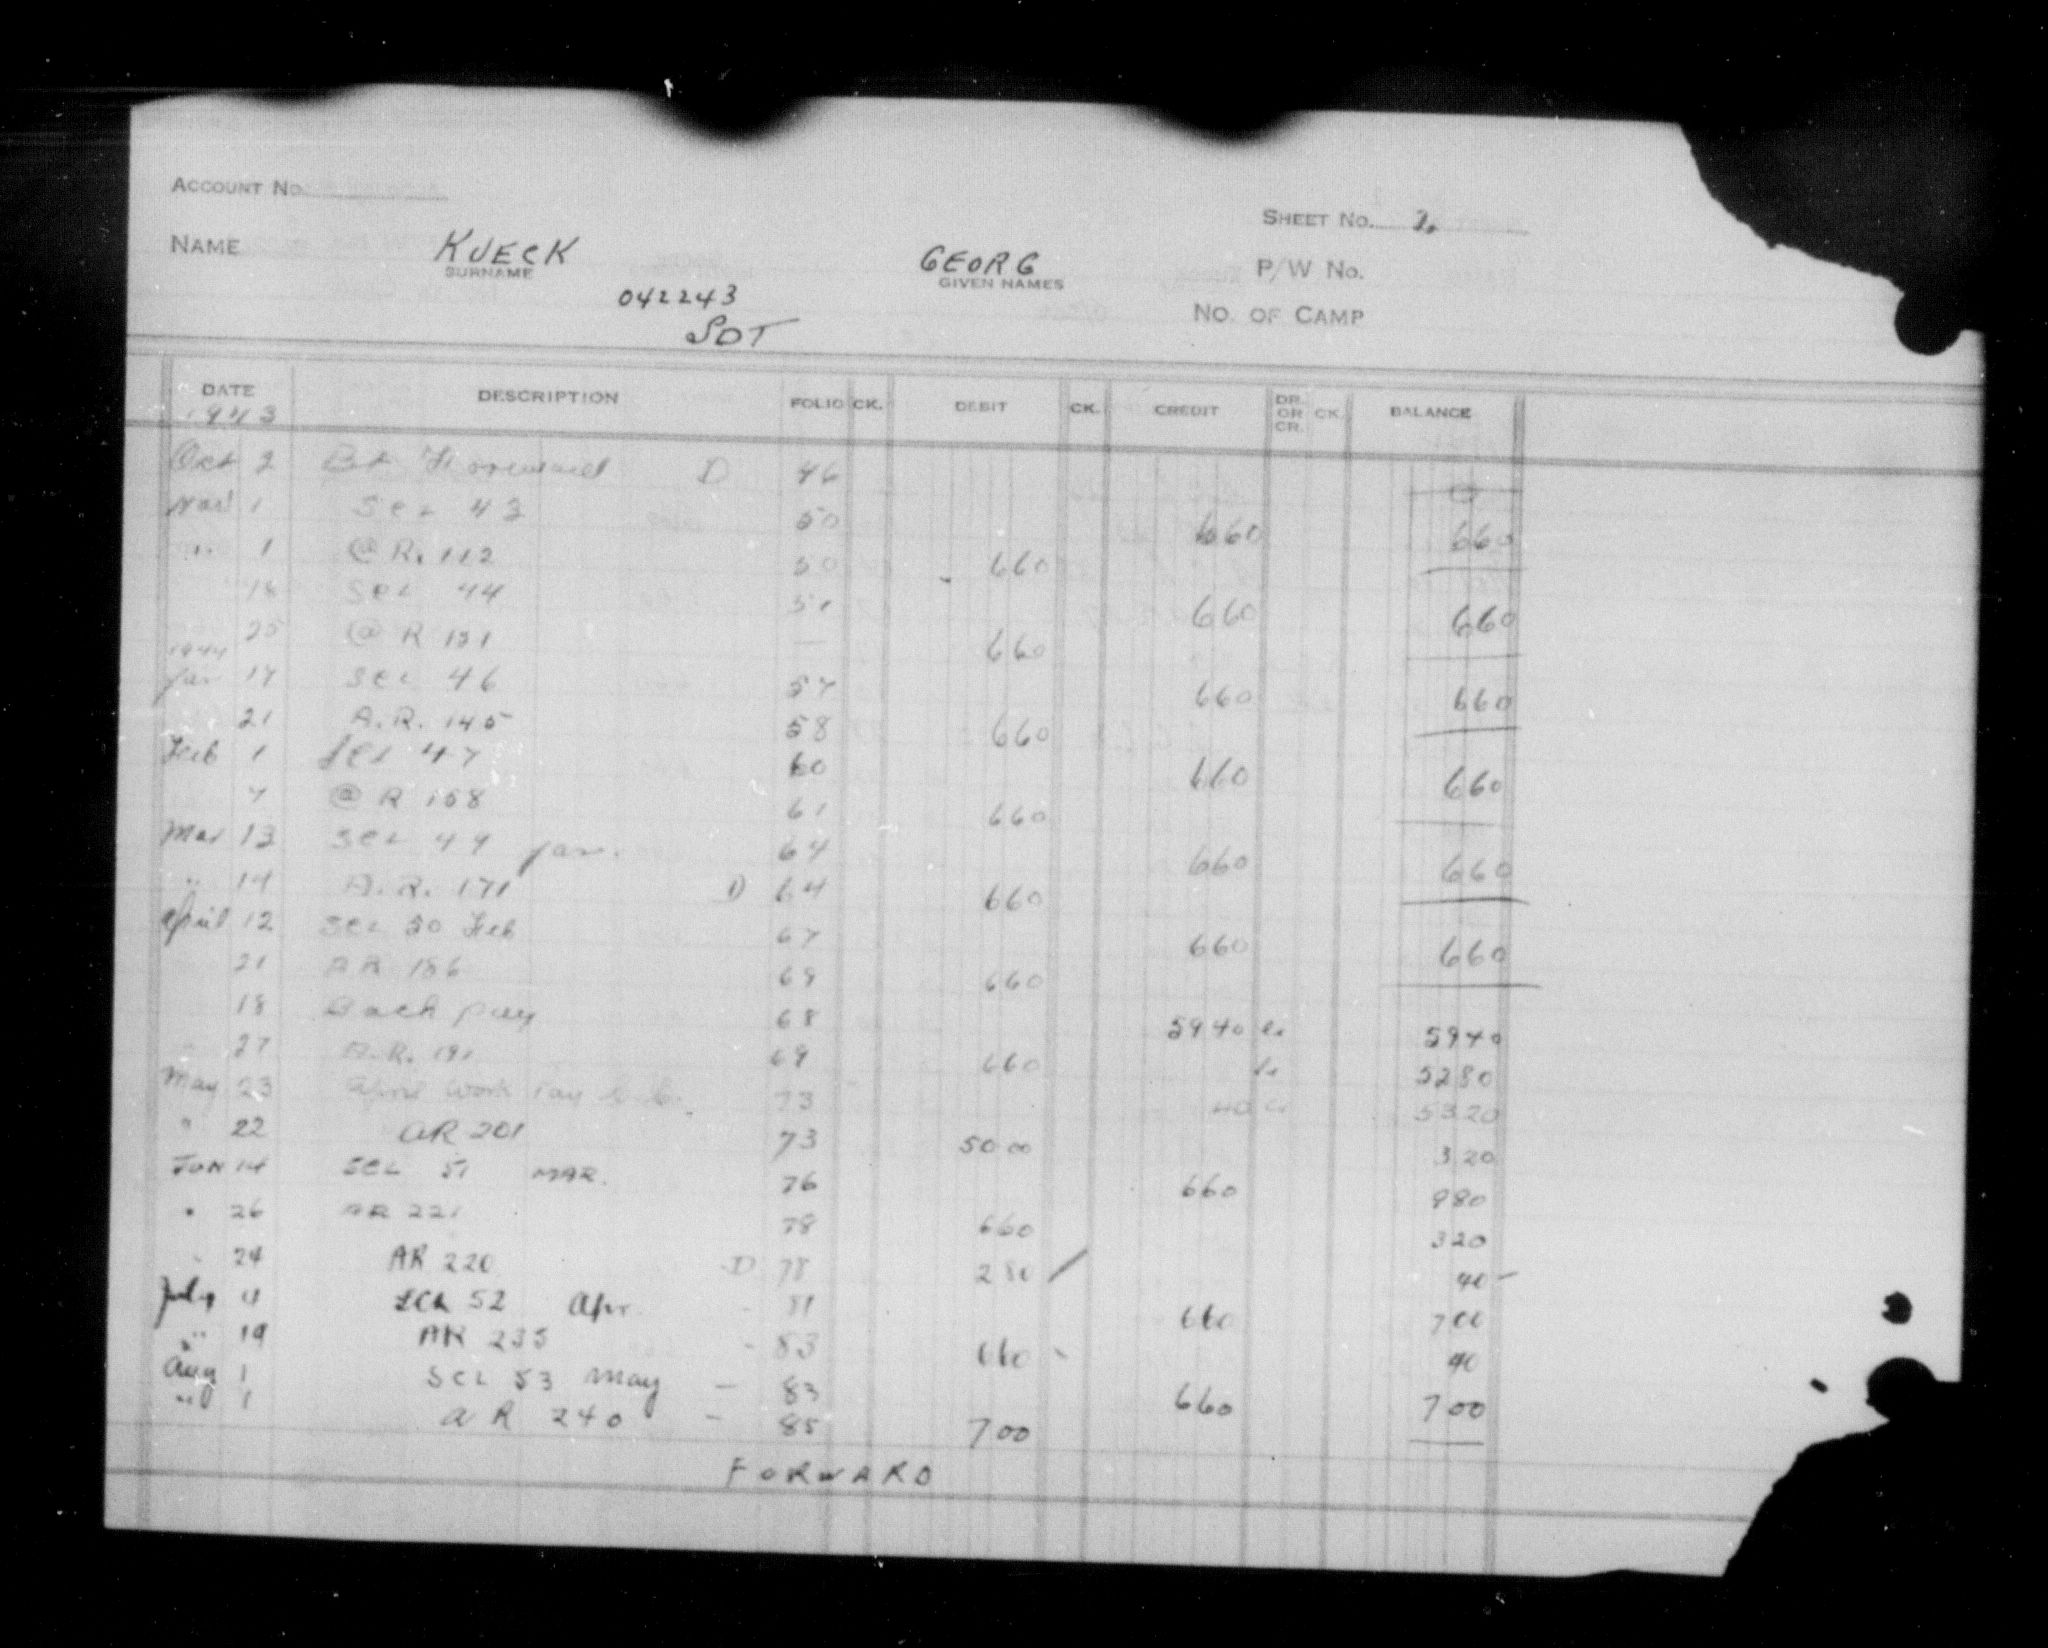 ACCOUNT NO.
SHEET NO. 2.
NAME KUECK GEORG P/W NO.
SURNAME GIVEN NAMES
042243 NO. OF CAMP
SDT
DATE DESCRIPTION FOLIO CK. DEBIT CK. CREDIT DR. OR CR. CK. BALANCE
1943
Oct 2 Forward D 46 0
Nov 1 SCL 43 50 660 660
" 1 @ R. 112 50 660
18 SCL 44 51 660 660
25 @ R 131 — 660
1944
Jan 17 SCL 46 57 660 660
21 A.R. 145 58 660
Feb 1 SCL 47 60 660 660
7 @ R 158 61 660
Mar 13 SCL 49 Jan. 64 660 660
" 14 A.R. 171 D 64 660
April 12 SCL 50 Feb 67 660 660
21 AR 186 69 660
18 Back pay 68 5940 5940
27 A.R. 191 69 660 5280
May 23 April Work Pay 73 40 5320
" 22 AR 201 73 5000 320
Jun 14 SCL 51 MAR. 76 660 980
" 26 AR 221 78 660 320
" 24 AR 220 D 78 280 40
July 11 SCL 52 Apr. 81 660 700
" 19 AR 235 83 660 40
Aug 1 SCL 53 May — 83 660 700
" 1 AR 240 — 85 700
FORWARD